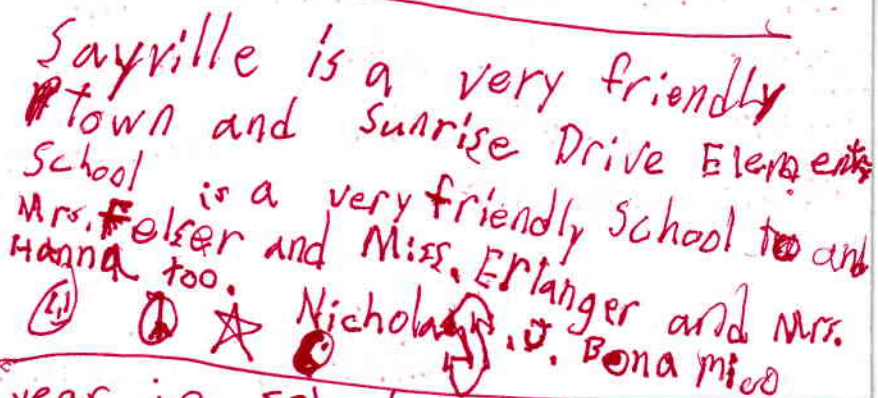 Sayville is a very friendly
town and Sunrise Drive Elementy
School is a very friendly School to and
Mrs. Felser and Miss. Erlanger and Mrs.
Hanna too.
Nicholas .J. Bonamico
year is